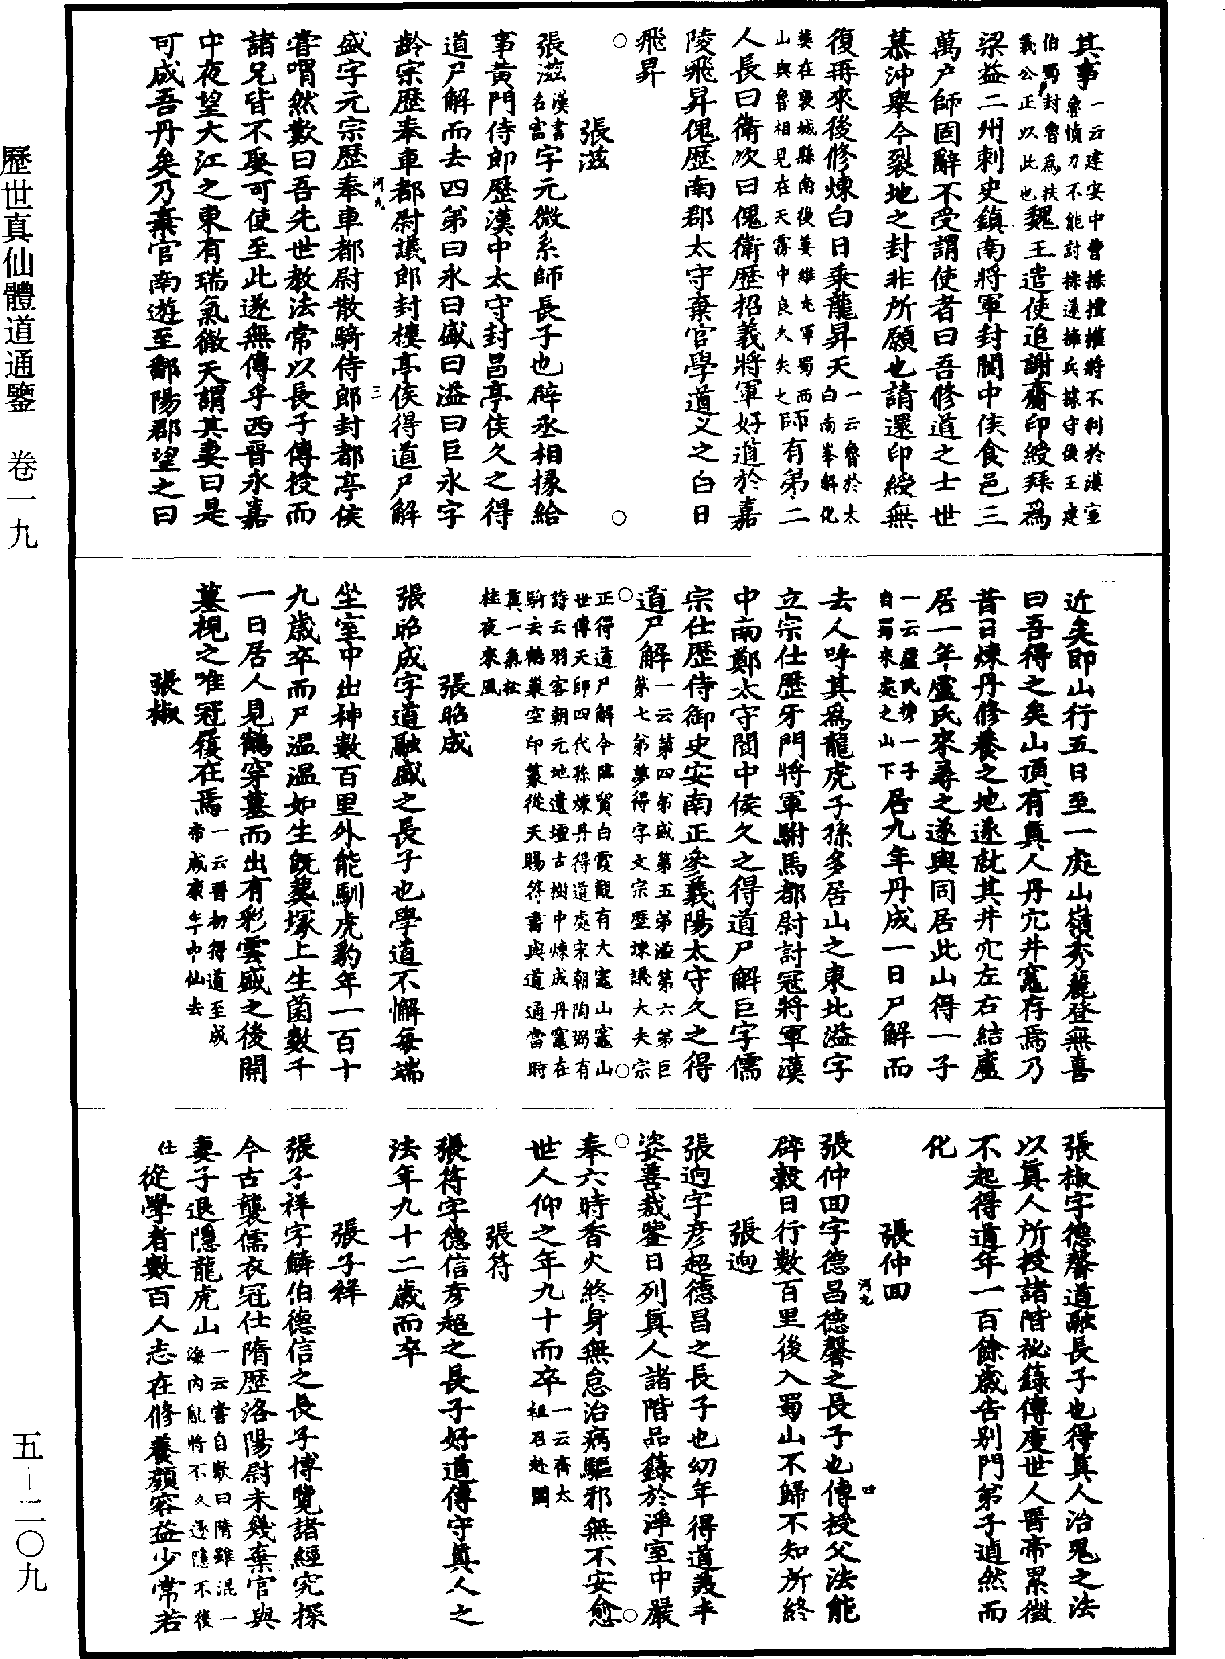 其事一云建安中曹操擅權將不利於漢室魯憤力不能討據遜擁兵據守後王建伯蜀封魯爲扶義公正以此也魏王遣使追謝齎印綬拜爲
梁益二州刺史鎮南將軍封閬中侯食邑三
萬户師固辭不受謂使者曰吾修道之士世
慕沖舉今裂地之封非所願也請還印綬無
復再來後修煉白日乘龍昇天一云魯於太白南峯解化葬在褒城縣南後姜維屯軍蜀西山與魯相見在天霧中良久失之師有弟二
人長曰衛次曰傀衛歷招義將軍好道於嘉
陵飛昇傀歷南郡太守棄官學道义之白日
飛昇
張滋
張滋漢書名富字元微系師長子也辟丞相掾給
事黃門侍郎歷漢中太守封邑亭侯久之得
道尸解而去四弟曰永曰盛曰溢曰巨永字
齡宗歷奉車都尉議郎封樓亭侯得道尸解
盛字元宗歷奉車都尉散騎侍郎封都亭侯
嘗喟然歎曰吾先世教法常以長子傳授而
諸兄皆不娶可使至此遂無傳乎西晉永嘉
中夜望大江之東有瑞氣徹天謂其妻曰是
可成吾丹矣乃棄官南遊至鄱陽郡望之曰
近矣即山行五日至一處山嶺秀麗登無喜
曰吾得之矣山頂有真人丹穴井竈存焉乃
昔日煉丹修養之地遂就其井穴左右結廬
居一年盧氏來尋之遂與同居此山得一子
一云盧氏携一子自蜀來處之山下居九年丹成一日尸解而
去人呼其爲龍虎子孫多居山之東北溢字
立宗仕歷牙門將軍駙馬都尉討寇將軍漢
中南鄭太守閬中侯久之得道尸解巨字儒
宗仕歷侍御史安南正參義陽太守久之得
道尸解一云第四弟盛第五弟溢第六弟巨第七弟夢得字文宗歷諫議大夫宗
正得道尸解今臨賀白霞觀有大竈山竈山
世傳天師四代孫煉丹得道處宋朝陶弼有
詩云羽客朝元地遺壇古樹中煉成丹竈在
斬云鶴巢空印篆從天賜符書與道通當時
真一氣松
桂夜來風
張昭成
張昭成字道融盛之長子也學道不懈每端
坐室中出神數百里外能馴虎豹年一百十
九歲卒而尸溫溫如生既葬塚上生菌數千
一日居人見鶴穿墓而出有彩雲盛之後開
墓視之唯冠履在焉一云晉初得道至成帝咸康年中仙去
張椒
張椒字德馨道融長子也得真人治鬼之法
以真人所授諸階祕籙傳度世人晋帝累徵
不起得道年一百餘歲告別門弟子逌然而
化
張仲回
張仲回字德昌德馨之長子也傳授父法能
辟穀日行數百里後入蜀山不歸不知所終
張逈
張逈字彦超德昌之長子也幼年得道美丰
姿善裁鑒日列真人諸階品籙於淨室中嚴
奉六時香火終身無怠治病驅邪無不安愈
世人仰之年九十而卒一云齊太祖召赴闕
張符
張符字德信彦超之長子好道傳守真人之
法年九十二歲而卒
張子祥
張子祥字麟伯德信之長子博覽諸經究探
今古襲儒衣冠仕隋歷洛陽尉未幾棄官與
妻子退隱龍虎山一云嘗自歎曰隋雖混一海内亂將不久遂隱不復
仕從學者數百人志在修養顏容益少常若
歷世真仙體道通鑒　卷一九
五－二〇九